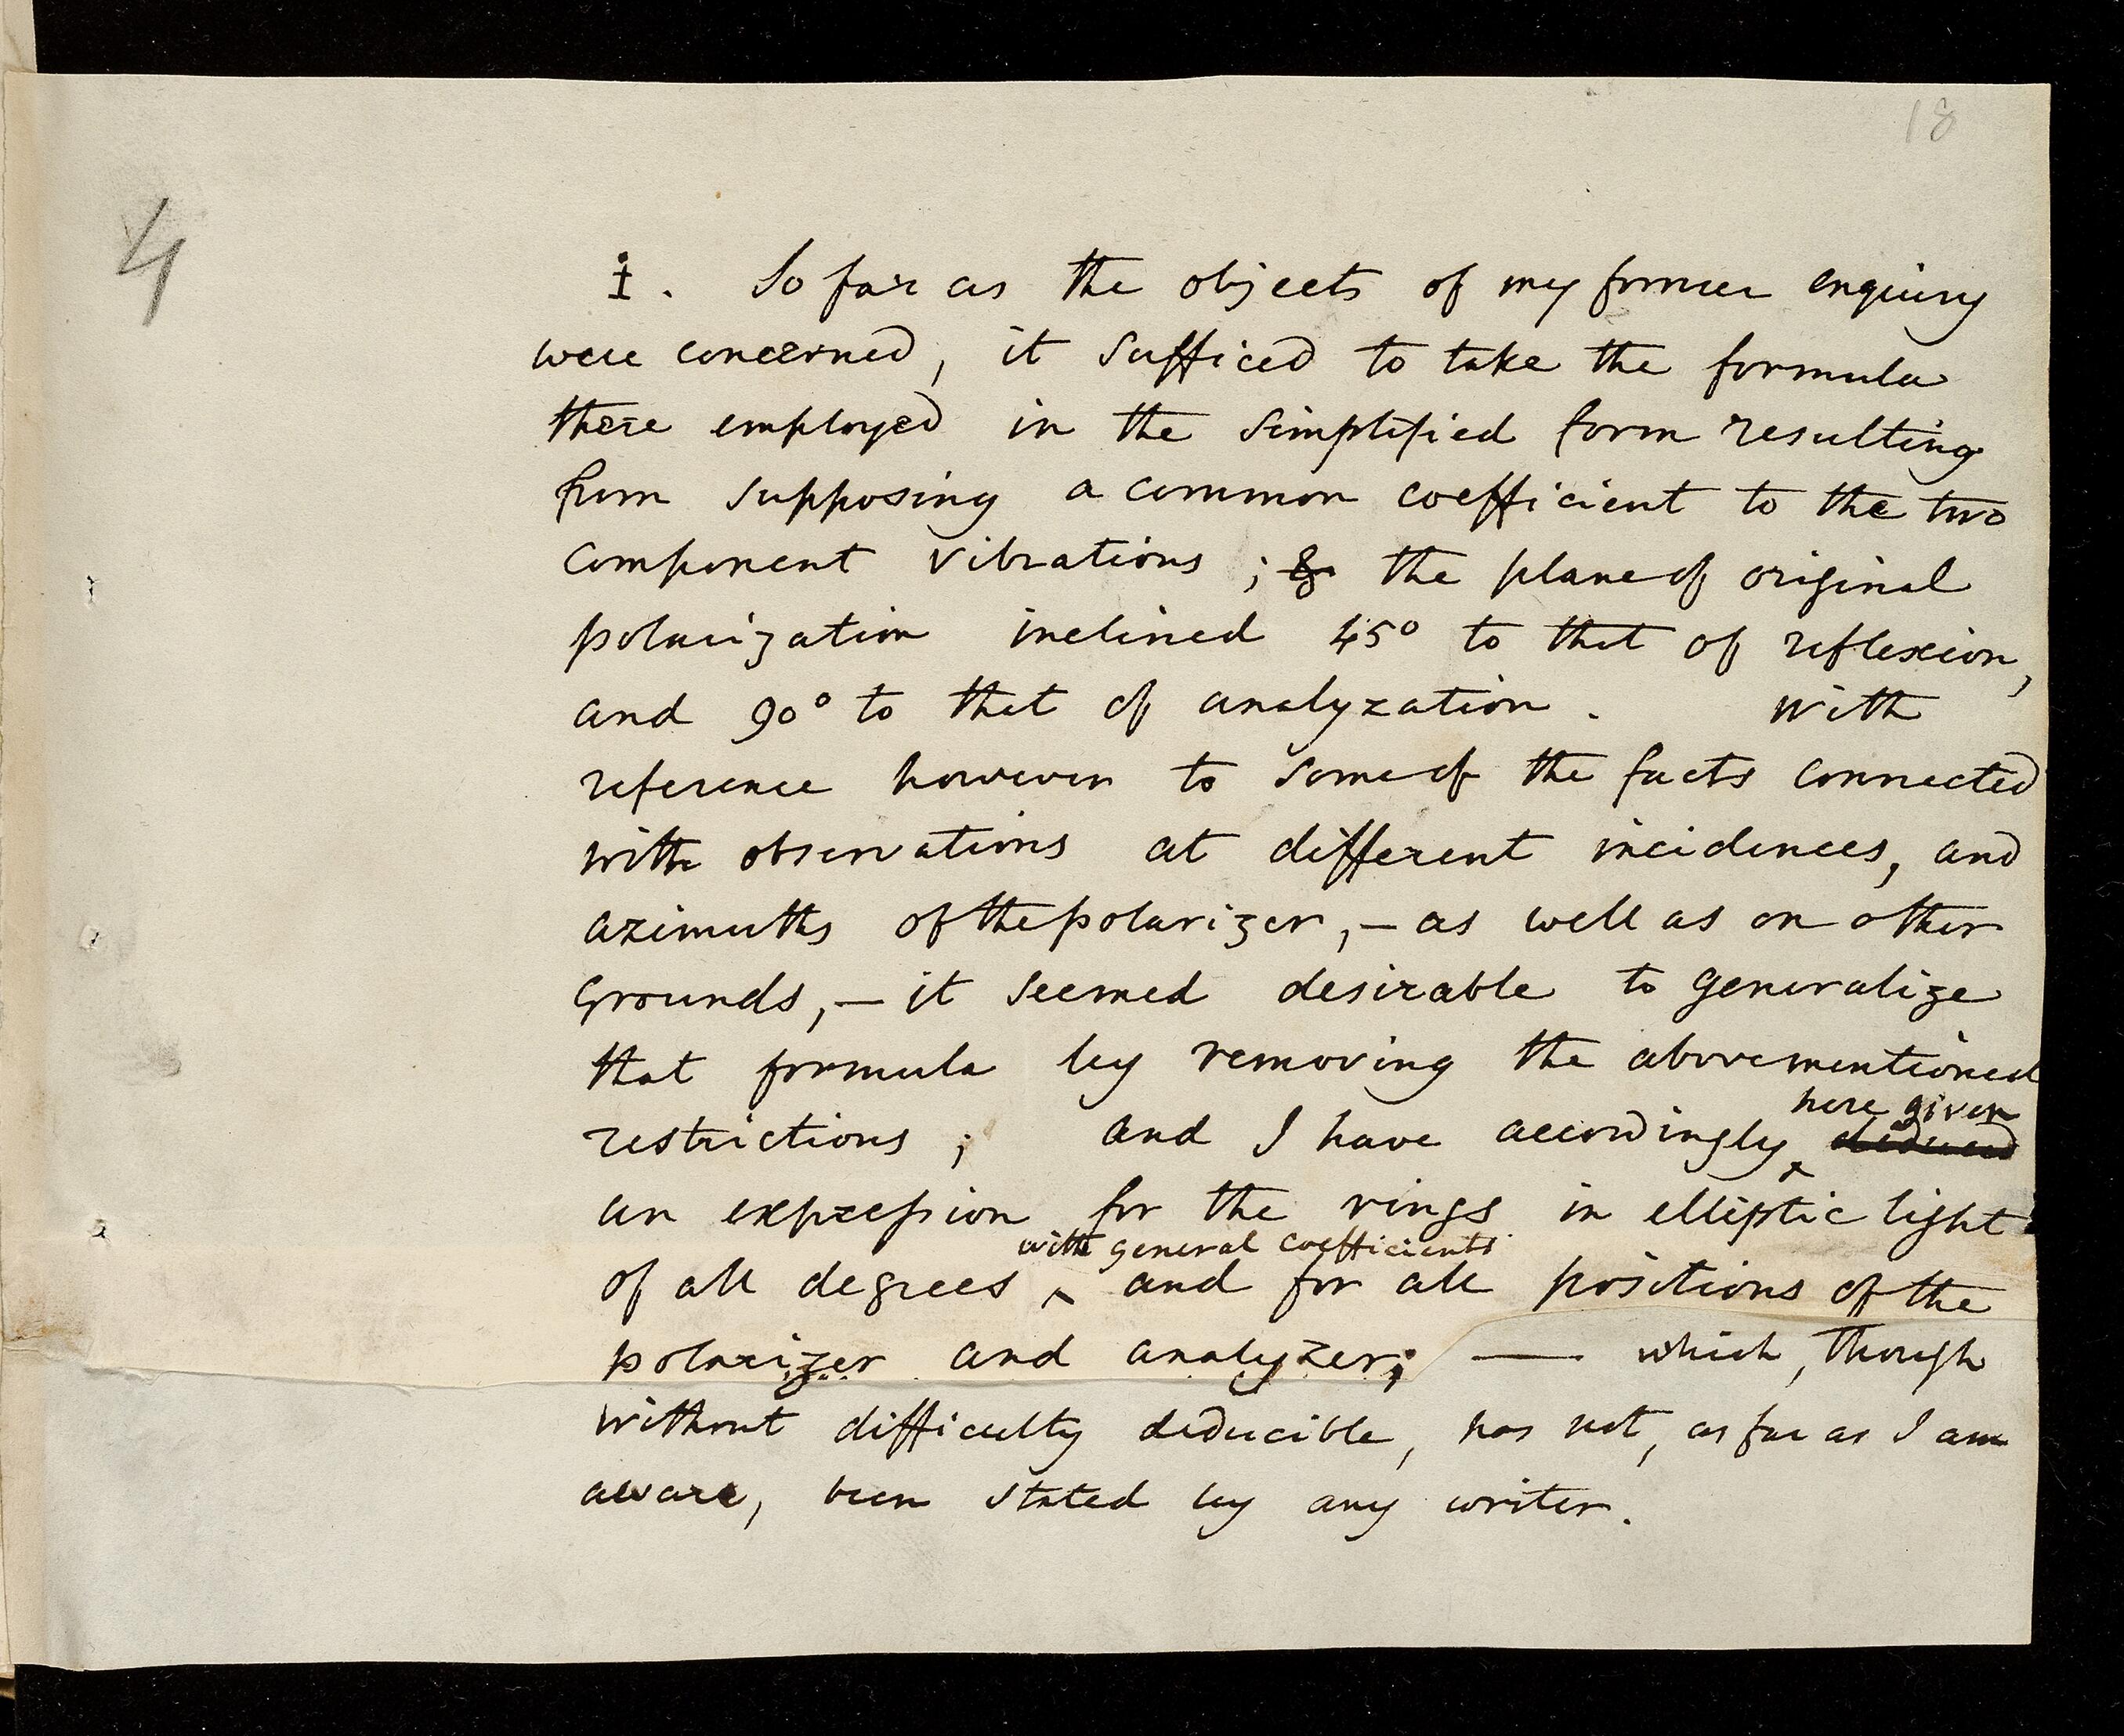 18
4
1. So far as the objects of my former enquiry
were concerned, it sufficed to take the formula
there employed in the simplified form resulting
from supposing a common coefficient to the two
component vibrations ; & the plane of original
polarization inclined 45° to that of reflexion,
and 90° to that of analyzation. With
reference however to some of the facts connected
with observations at different incidences, and
azimuths of the polarizer, – as well as on other
grounds, – it seemed desirable to generalize
that formula by removing the abovementioned
here given
restrictions ; and I have accordingly ‸ deduced
an expression for the rings in elliptic light
with general coefficients
of all degrees ‸ and for all positions of the
polarizer and analyzer; — which, though
without difficulty deducible, has not, as far as I am
aware, been stated by any writer.